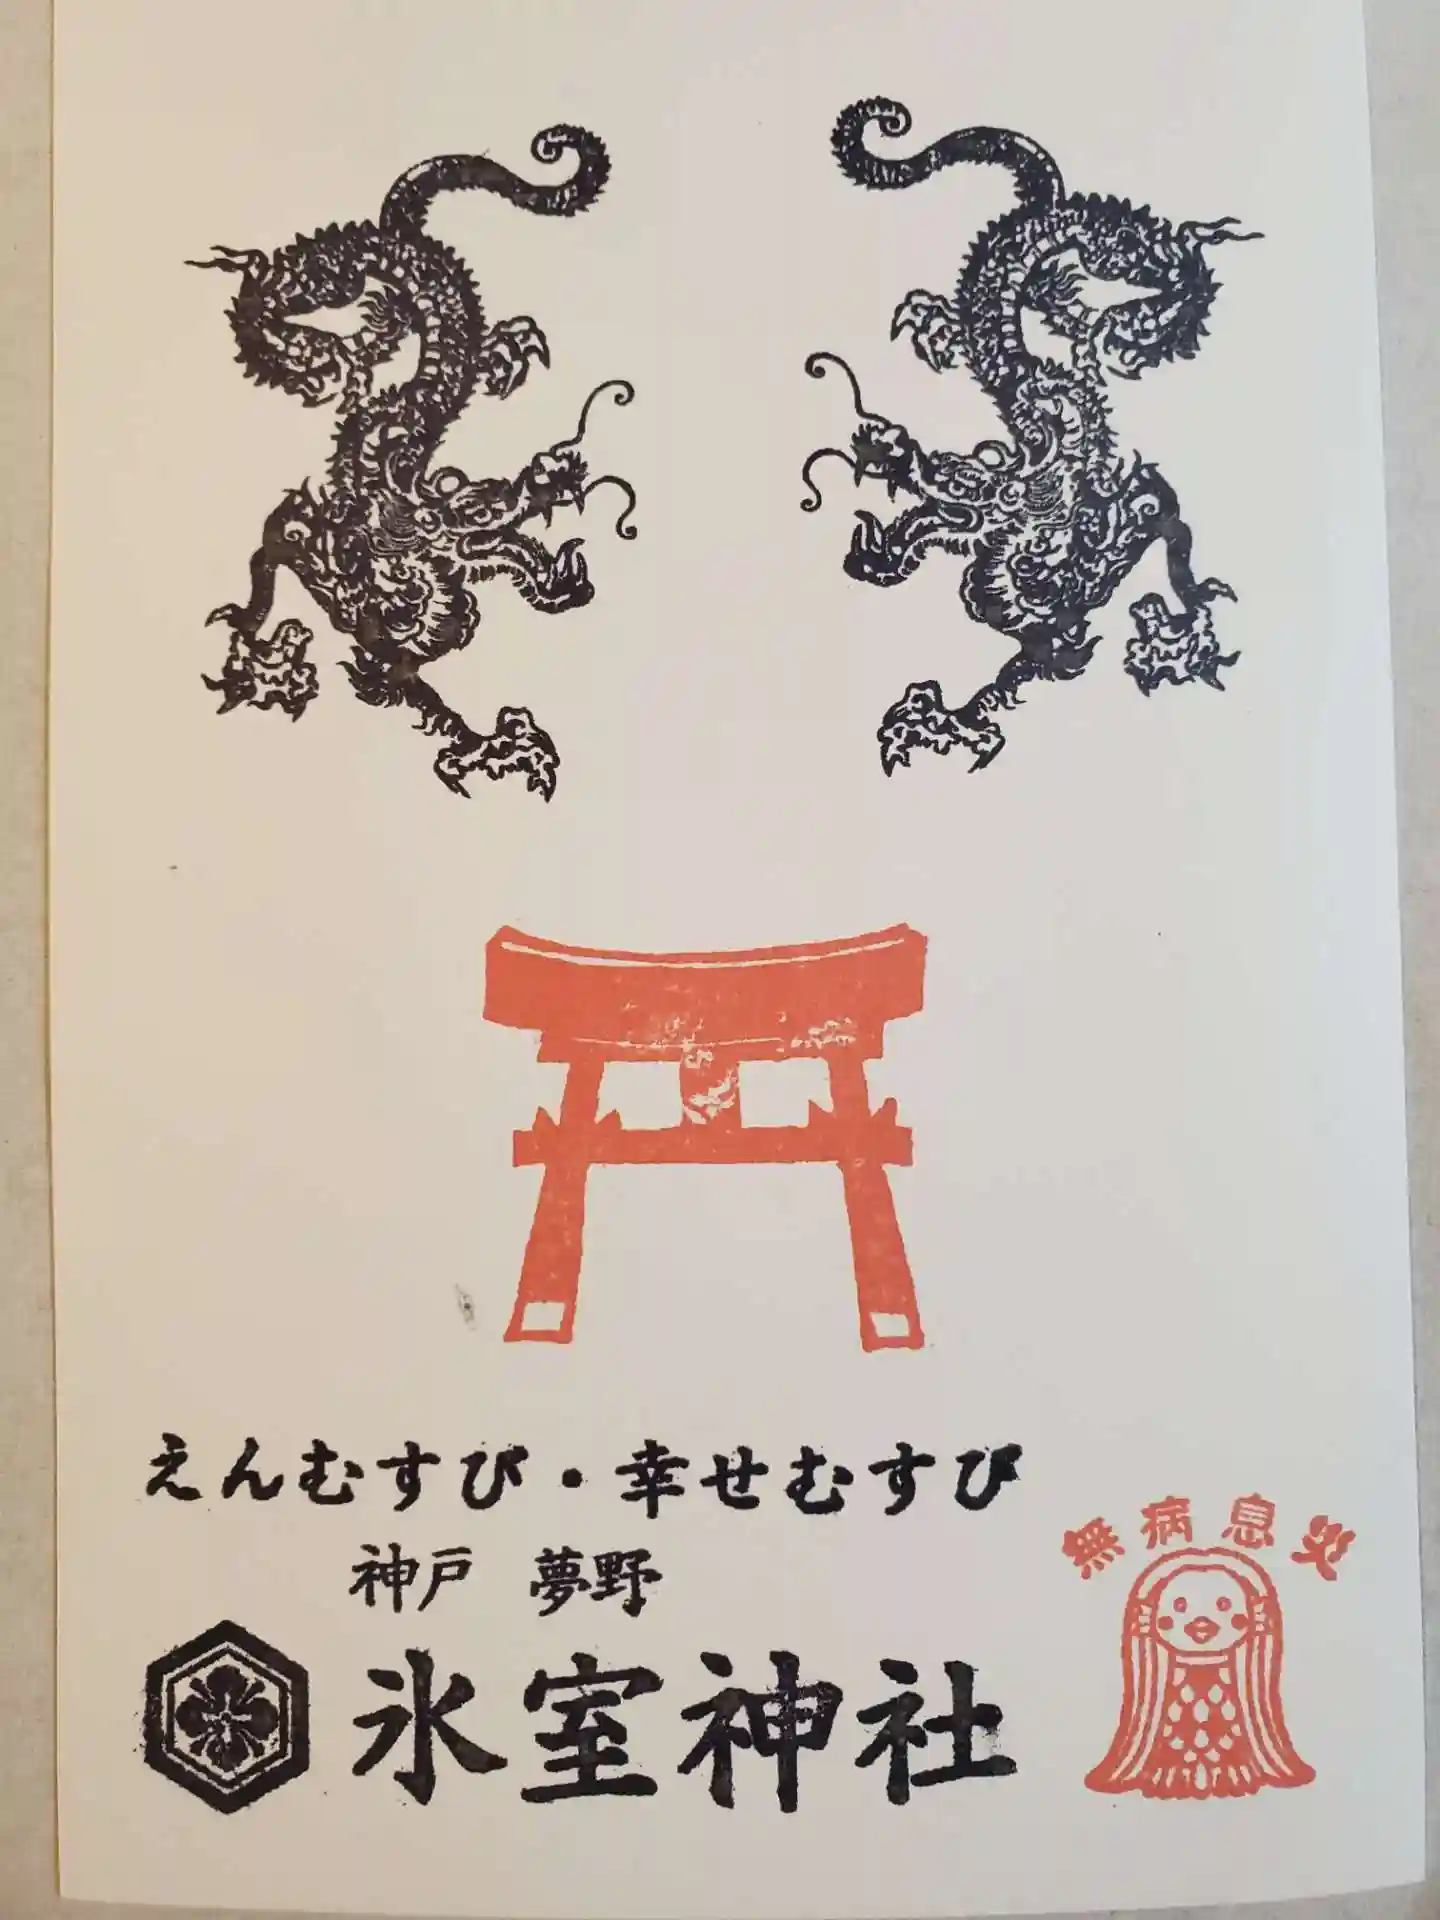 えんむすび・幸せむすび
神戸 夢野
氷室神社
無病息災